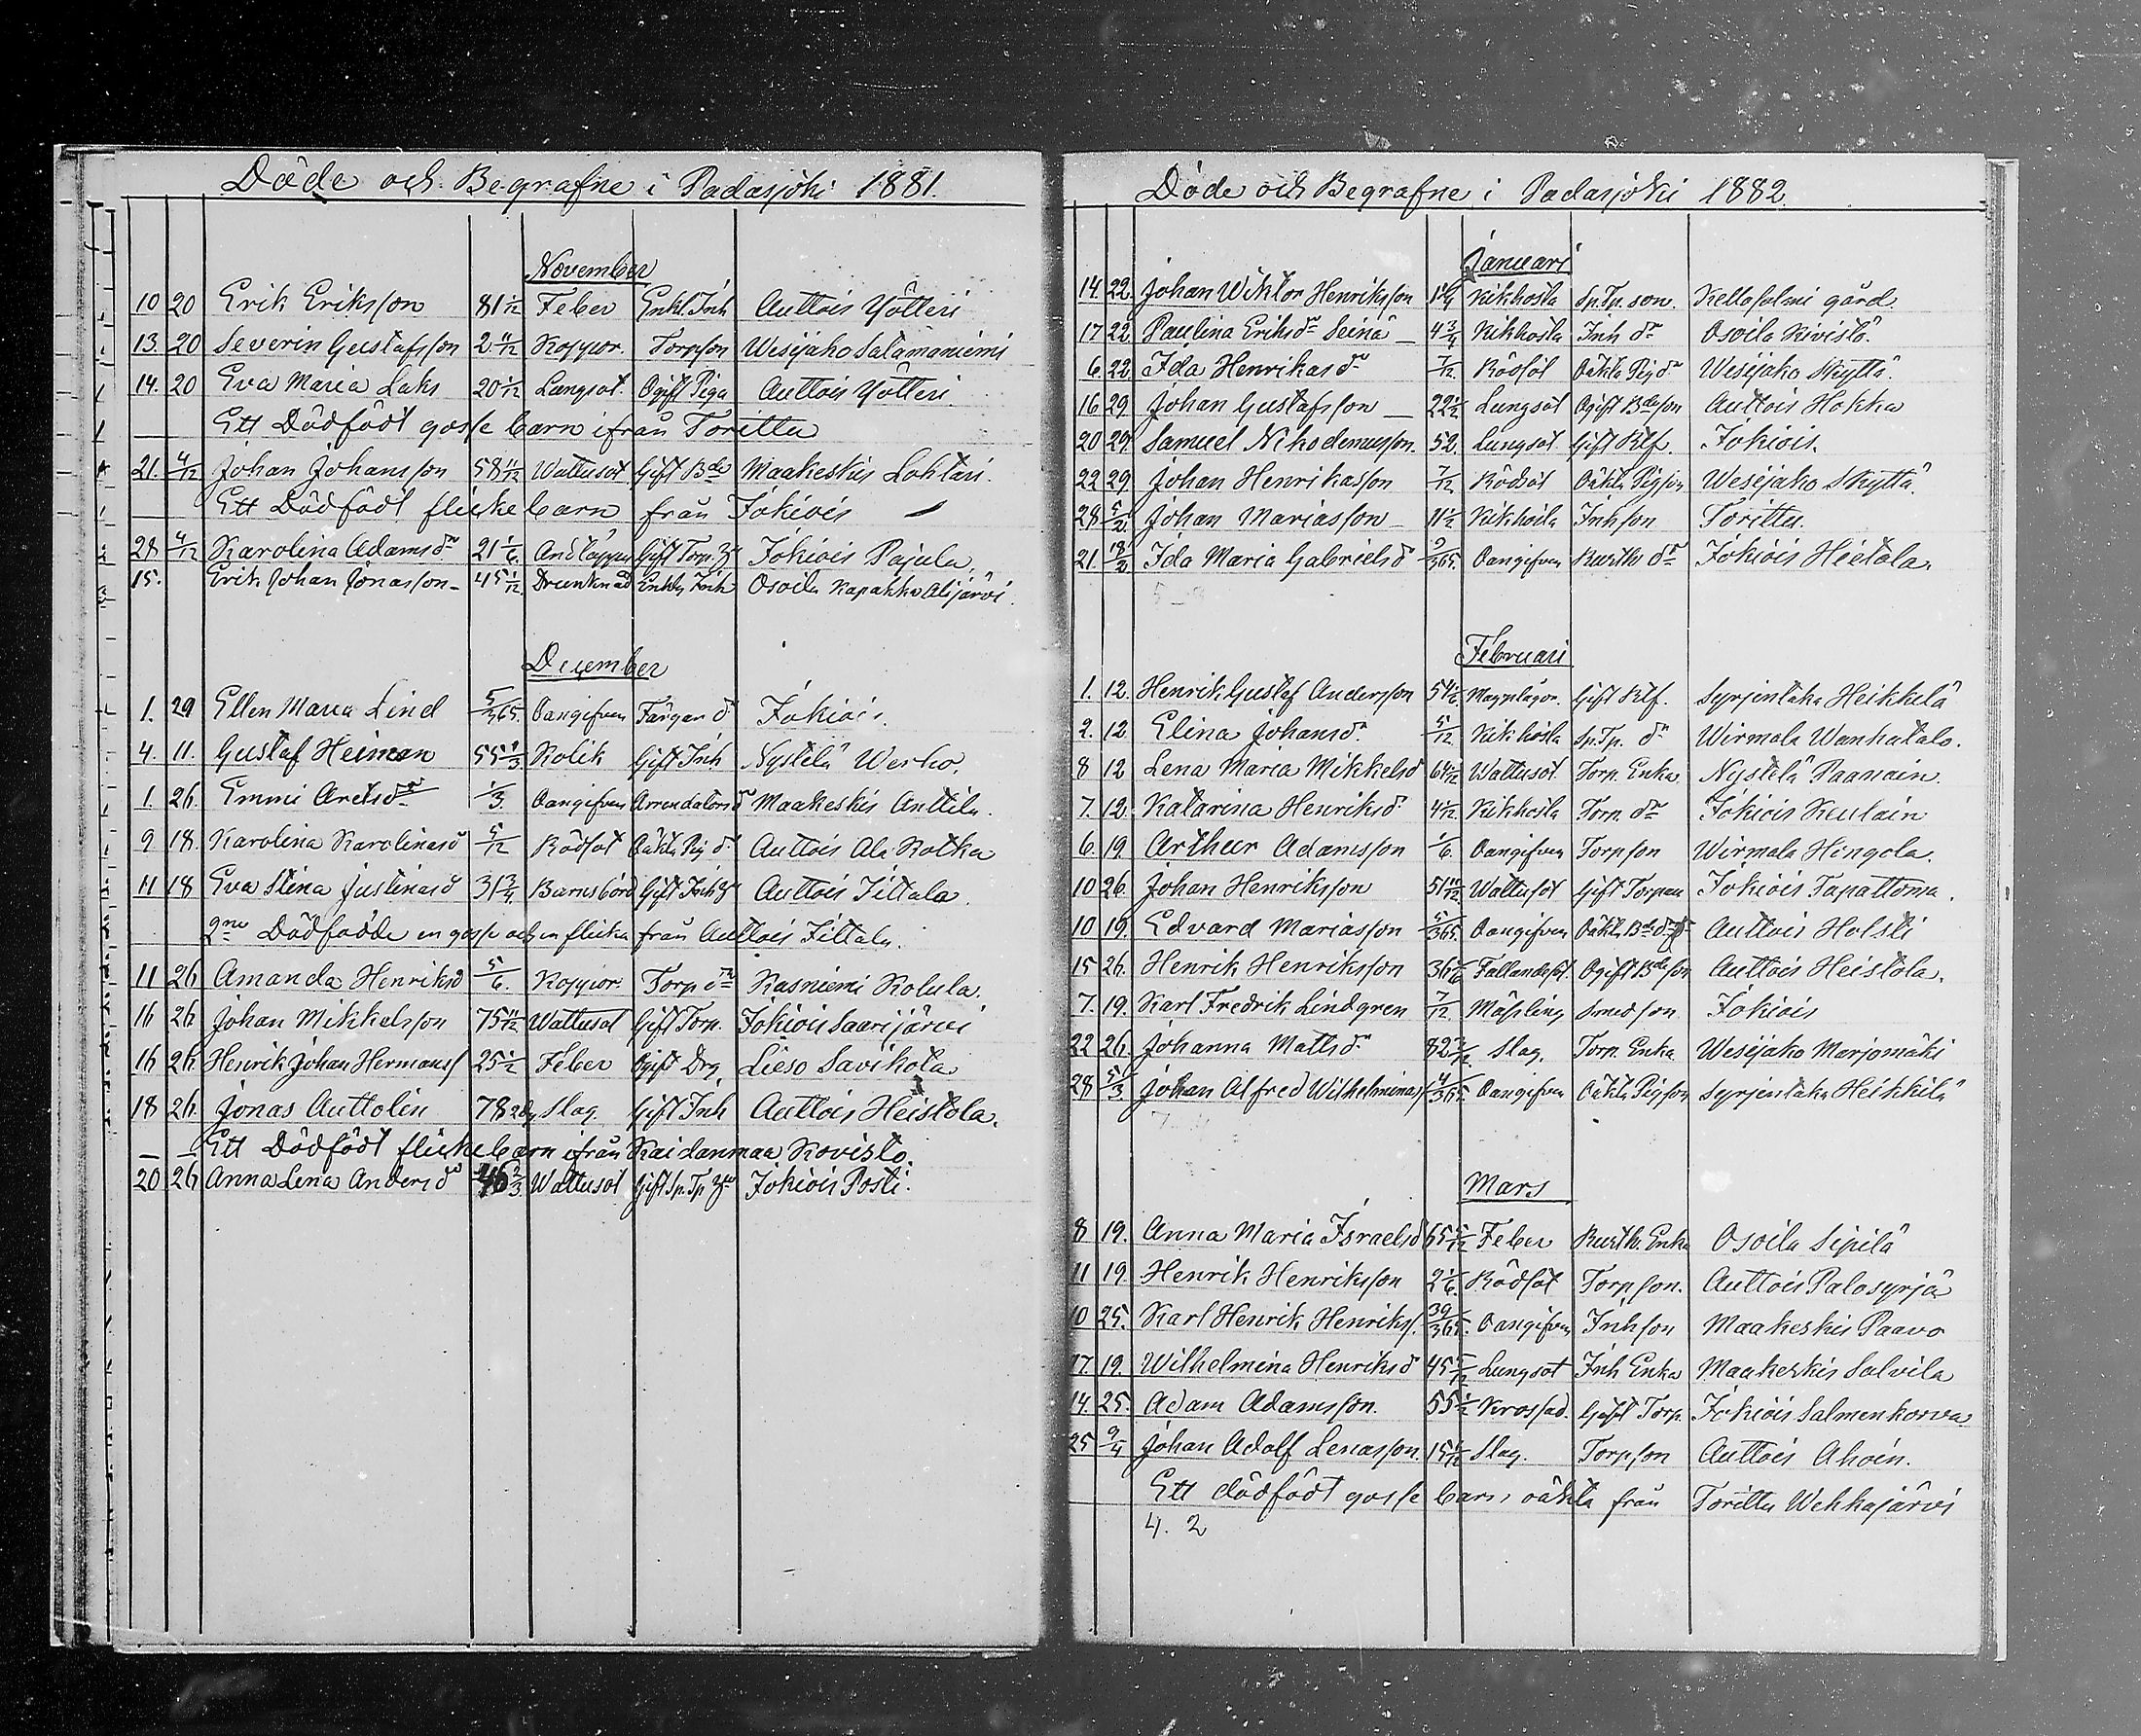 Döde och Begrafne i Padasjoki 1881.
November
10 20 Erik Eriksson 81 1/12 Feber Enkl. Inh Auttois Yötteri
13. 20 Severin Gustafsson 2 11/12 Koppor. Torpson Wesijako Salamaniemi
14. 20 Eva Maria Laks 20 1/12 Lungsot. Ogift Piga Auttois Yötteri
Ett Dödfödt gosse barn ifrån Torittu
21. 4/12 Johan Johansson 58 11/12 Wattusot Gift Bde Maakeskis Lohtari.
Ett Dödfödt flicke barn från Jokiois
28 4/12 Karolina Adamsdr 21 1/6. Andtäppa Gift Torp. Jokiois Pajula.
15. Erik Johan Jonasson 45 1/12. Drunknad Enkl. Inh Osoila Kapakka Alijärvi.
December
1. 29 Ellen Maria Lind 5/365. Oangifven Färgar dr Jokiois.
4. 11. Gustaf Heiman 55 1/3. Kolik Gift Inh Nystelä Werho.
1. 26. Emmi Aretsdr 1/3. Oangifven Arrendators dr Maakeskis Anttila.
9 18. Karolina Karolinasd 5/12 Rödsot Oäkta Pig dr Auttois Ala Kotka
11 18 Eva Stina Justinasd 31 3/4 Barnsbörd Gift Inh Auttois Tittala.
2ne Dödfödde en gosse och en flicka från Auttois Tittala.
11 26 Amanda Henriksd 5/6. Koppor. Torp dr Kasniemi Kolula.
16 26. Johan Mikkelsson 75 11/12 Wattusot Gift Torp. Jokiois Saarijärvi
16 26. Henrik Johan Hermanss 25 1/2 Feber Ogift Drg. Lieso Savikota
18 26. Jonas Auttolin 78 2dg Slag. Gift Inh Auttois Heistola.
Ett Dödfödt flicke barn ifrån Kaidanmaa Kovisto.
20 26 Anna Lena Andersd 46 2/3. Wattusot Gift Sp. Tp Jokiois Posti.
Döde och Begrafne i Padasjoki 1882.
Januari
14. 22. Johan Wiktor Henriksson Kikhosta Sp. Tp. son. Kellosalmi gård.
17 22 Paulina Eriksdr Seinä 4 3/4 Kikhosta Inh dr Osoila Kivistö.
6. 22 Ida Henrikasdr 7/12. Rödsot Oäkta Pig dr Wesijako Skyttä.
16 29 Johan Gustafsson 22 1/2 Lungsot Ogift Bdeson Auttois Hokka
20 29. Samuel Nikodemusson. 52. Lungsot Gift Klf. Jokiois.
22 29 Johan Henrikasson 7/12. Rödsot Oäkta Pigson Wesijako Skyttä.
28 5/2 Johan Mariasson 11 1/2 Kikhosta Inhson Torittu.
21. 12/2 Ida Maria Gabrielsd 9/365. Oangifven Kustb dr Jokiois Hietola.
Februari
1. 12. Henrik Gustaf Andersson 54 1/2. Magplågor. Gift Klf. Syrjentaka Heikkilä
2. 12 Elina Johansdr 5/12 Kikhosta Sp. Tp. dr Wirmala Wanhatalo.
8 12 Lena Maria Mikkelsd Wattusot Torp. Enka Nystelä Paanain.
7. 12. Katarina Henriksd. 4 1/12. Kikhosta Torp. dr Jokiois Keulain
6. 19 Arthur Adamsson 1/6. Oangifven Torpson Wirmala Hingola.
10 26. Johan Henriksson 51 11/12 Wattusot Gift Torpau Jokiois Tapattoma.
10 19. Edvard Mariasson 5/365. Oangifven Oäkta Auttois Holsti
15 26. Henrik Henriksson Fallandesot. Ogift Bdeson Auttois Heistola.
7. 19. Karl Fredrik Lindgren 7/12. Mässling Smedson Jokiois
22 26. Johanna Mattsdr Slag. Torp. Enka Wesijako Marjomäki
28 5/3 Johan Alfred Wilhelminas 4/365. Oangifven Oäkta Pigson Syrjentaka Heikkilä
Mars
8 19. Anna Maria Israelsd 65 5/12 Feber Kustb. Enka Osoila Sipilä
11 19. Henrik Henriksson 2 1/6. Rödsot Torpson. Auttois Palosyrjä
10 25. Karl Henrik Henrikss. 39/365. Oangifven Inhson Maakeskis Paavo
17. 19. Wilhelmina Henriksd 45 5/12 Lungsot Inh Enka Maakeskis Salvila
14. 25. Adam Adamsson. 55 1/2 Gift Torp. Jokiois Salmenkorva
25 9/4 Johan Adolf Lenasson. Slag. Torpson Auttois Ahoin.
Ett dödfödt gosse barn, oäkta från Torittu Wehkajärvi
4. 2